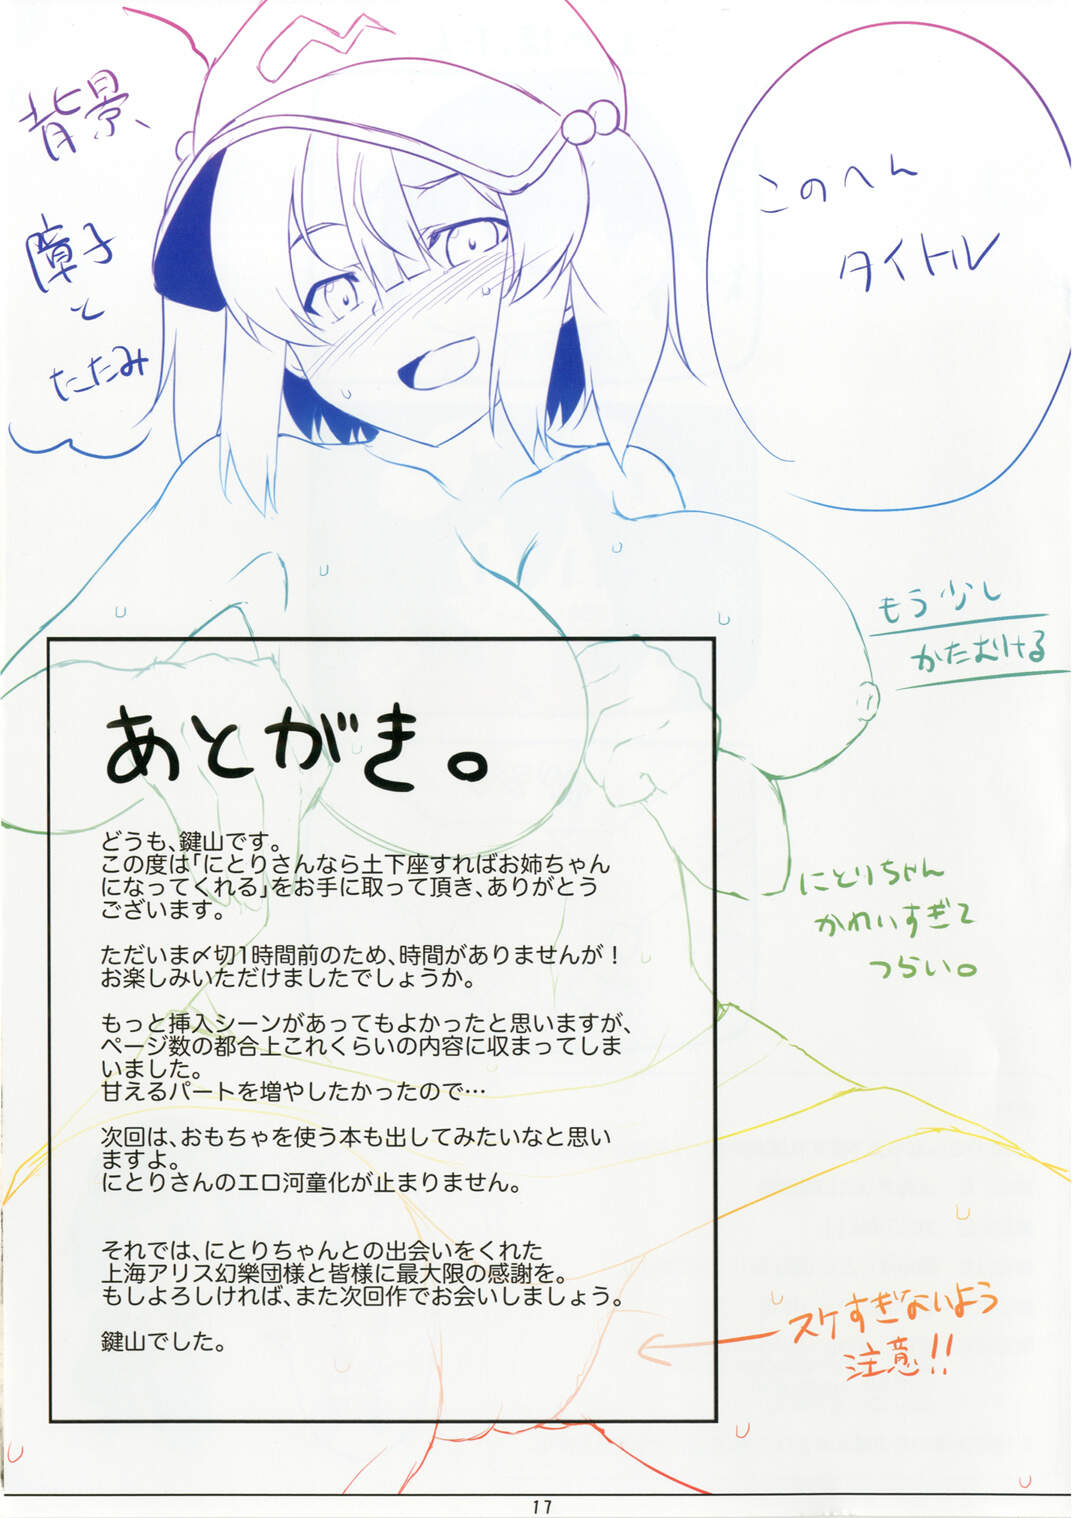 背景
障子
と
たたみ
このへん
タイトル
もう少し
かたむける
あとがき。
どうも、鍵山です。
この度は「にとりさんなら土下座すればお姉ちゃん
になってくれる」をお手に取って頂き、ありがとう
ございます。
ただいま〆切1時間前のため、時間がありませんが！
お楽しみいただけましたでしょうか。
もっと挿入シーンがあってもよかったと思いますが、
ページ数の都合上これくらいの内容に収まってしま
いました。
甘えるパートを増やしたかったので…
次回は、おもちゃを使う本も出してみたいなと思い
ますよ。
にとりさんのエロ河童化が止まりません。
それでは、にとりちゃんとの出会いをくれた
上海アリス幻樂団様と皆様に最大限の感謝を。
もしよろしければ、また次回作でお会いしましょう。
鍵山でした。
にとりちゃん
かわいすぎて
つらい。
スケすぎないよう
注意!!
17